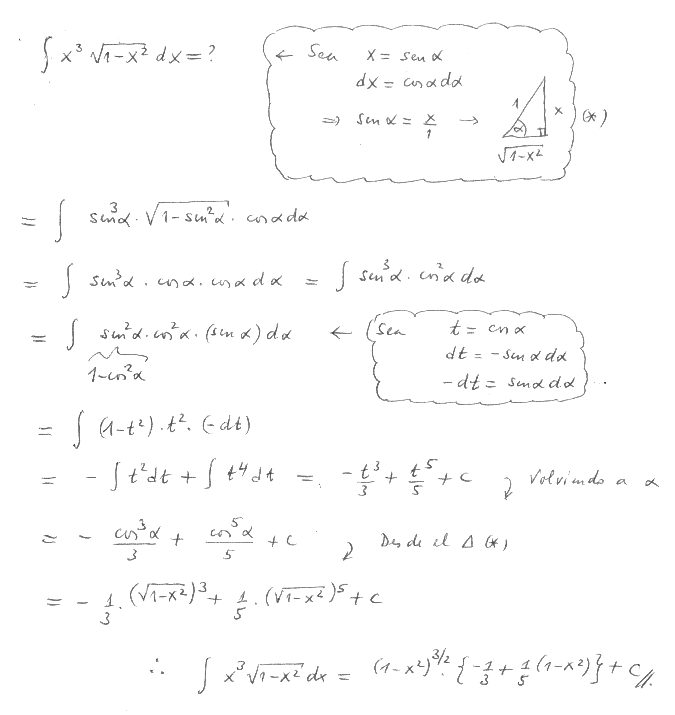 ∫ x³ √1-x² dx = ?
← Sea x = sen α
dx = cos α dα
⇒ sen α = x/1 →
1 x α √1-x² (*)
= ∫ sen³α · √1-sen²α · cos α dα
= ∫ sen³α · cos α · cos α dα = ∫ sen³α · cos²α dα
= ∫ sen²α · cos²α · (sen α) dα ← (Sea t = cos α
1-cos²α
dt = -sen α dα
-dt = sen α dα) ...
= ∫ (1-t²) · t² · (-dt)
= - ∫ t² dt + ∫ t⁴ dt = - t³/3 + t⁵/5 + c Volviendo a α
= - cos³α/3 + cos⁵α/5 + c Desde el Δ (*)
= - 1/3 · (√1-x²)³ + 1/5 · (√1-x²)⁵ + c
∴ ∫ x³ √1-x² dx = (1-x²)^3/2 · {-1/3 + 1/5 (1-x²)} + c //.